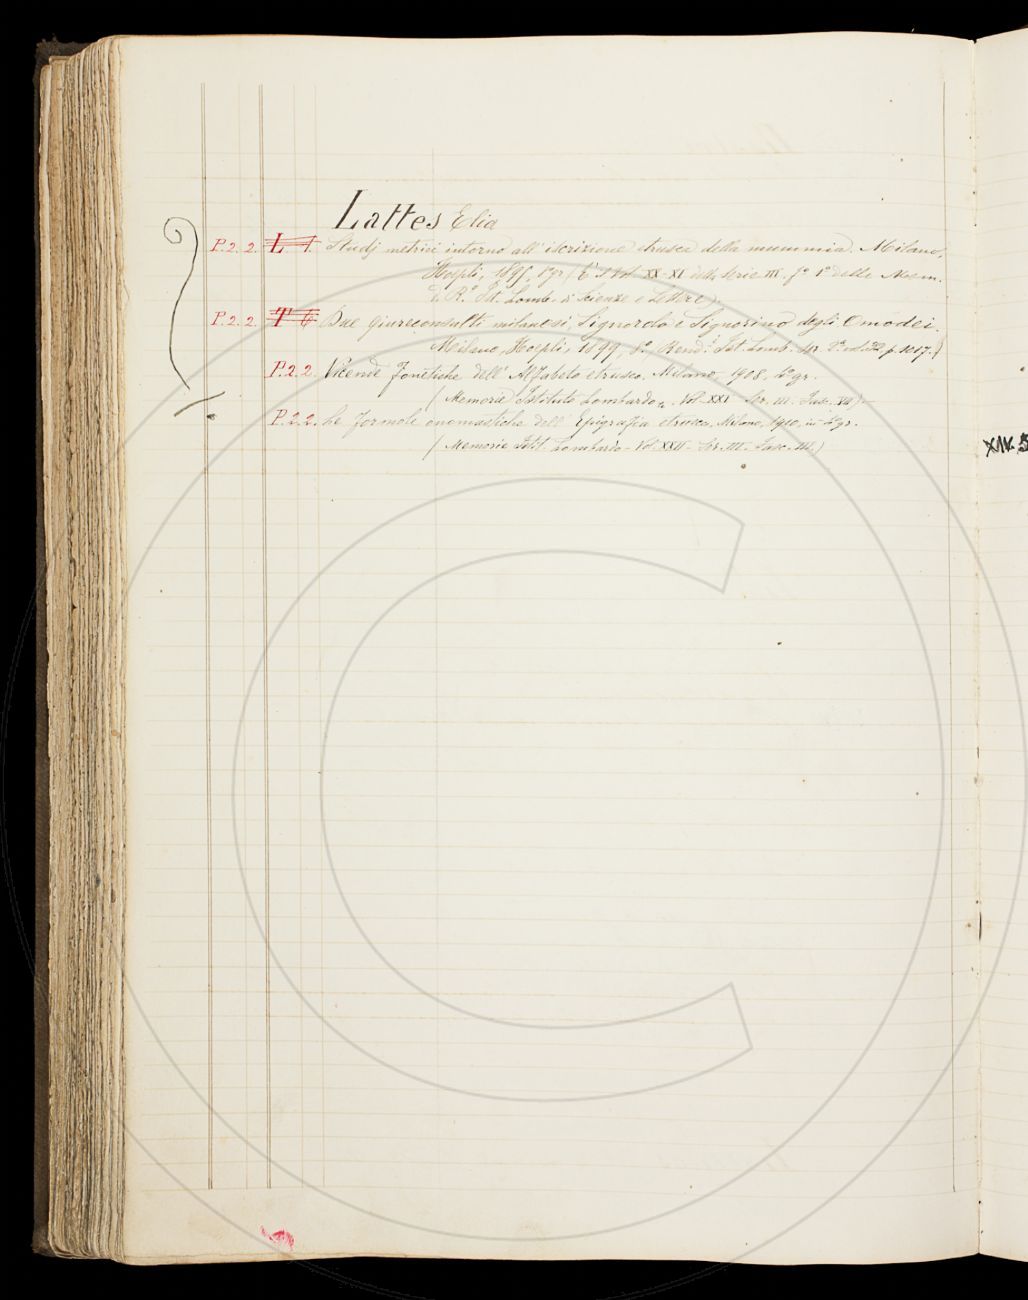 Lattes Elia
P.2.2. L 1. Studj metrici intorno all' iscrizione etrusca della mummia. Milano,
Hoepli, 1895, 4° gr. (È Vol. XX-XI della serie III. f° 1° delle Mem.
d. R.° Ist. Lomb. di Scienze e Lettere).
P.2.2. T 6 Due giureconsulti milanesi, Signorolo e Signorino degli Omodei.
Milano, Hoepli, 1899, 8°. Rend.i Ist. Lomb. ser. 2a vol. 32, p. 1017.)
P.2.2. Vicende fonetiche dell' Alfabeto etrusco. Milano, 1908. 4° gr.
(Memorie Istituto Lombardo. Vol. XXI - Ser. III. Fasc. VII) -
P.2.2. Le formole onomastiche dell' Epigrafia etrusca. Milano, 1910, in 4° gr.
(Memorie Istit. Lombardo - Vol. XXII - Ser. III. Fasc. III.)
XIV. 5